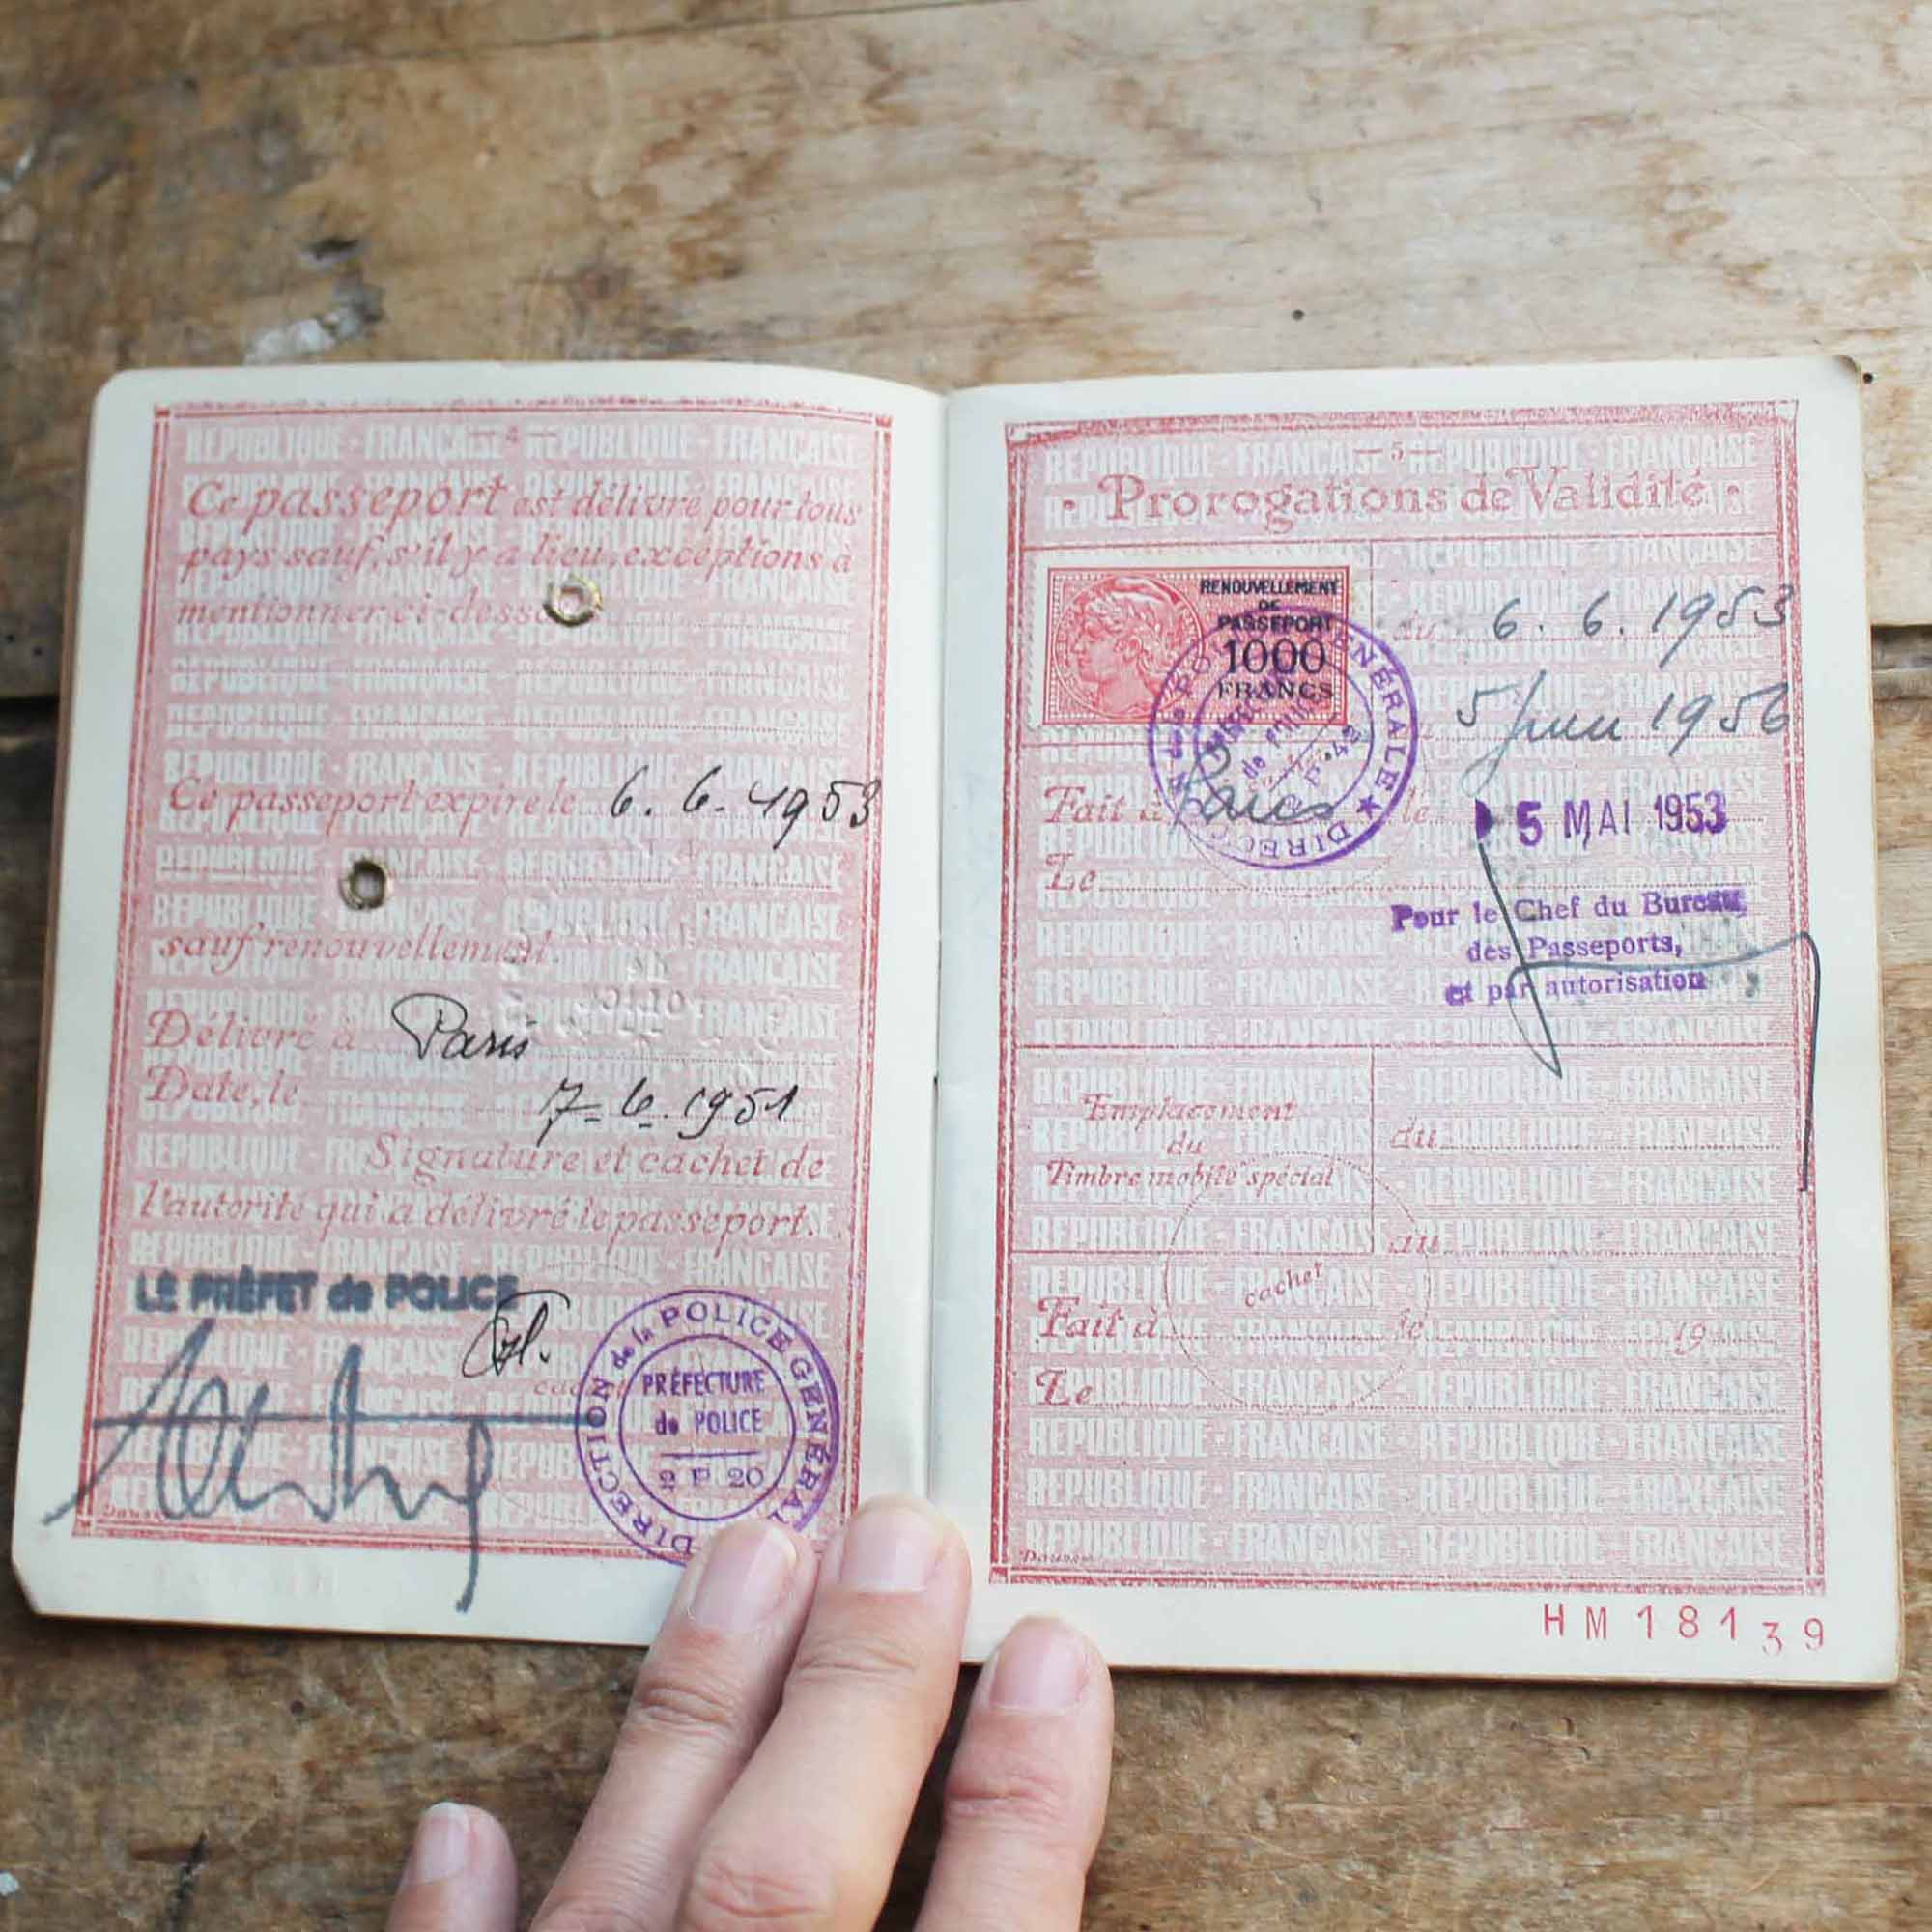 — 4 —
Ce passeport est délivré pour tous
pays sauf, s'il y a lieu, exceptions à
mentionner ci-desso
Ce passeport expire le 6. 6. 1953
sauf renouvellement.
Délivré à Paris
Date, le 7-6.1951
Signature et cachet de
l'autorité qui a délivré le passeport.
LE PRÉFET de POLICE
DIRECTION de la POLICE GÉNÉRAL
PRÉFECTURE
de POLICE
2 P 20
— 5 —
• Prorogations de Validité •
RENOUVELLEMENT
DE
PASSEPORT
1000
FRANCS
du 6. 6. 1953
5 Juin 1956
Fait à Paris le 5 MAI 1953
Le
Pour le Chef du Bureau
des Passeports,
et par autorisation
Emplacement
du
Timbre mobile spécial
du
au
cachet
Fait à le 19
Le
HM18139